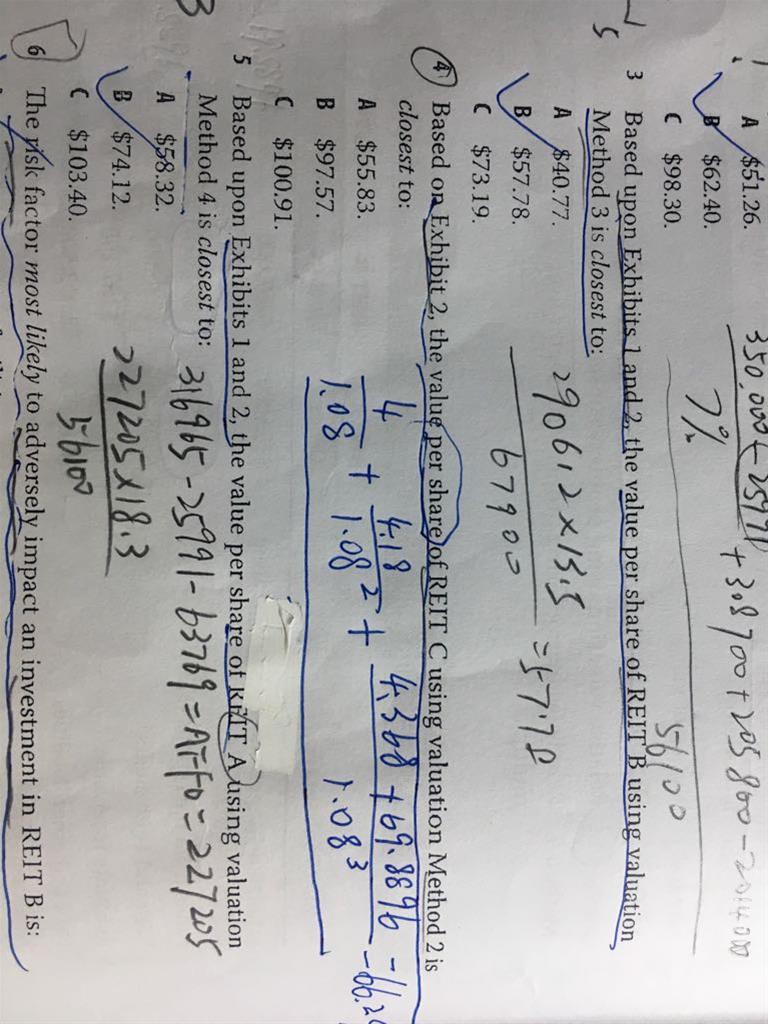 A $51.26.
B $62.40.
C $98.30.
350,000 - 25991 + 30,8700 + 205800 - 2014000
7%
56100
3 Based upon Exhibits 1 and 2, the value per share of REIT B using valuation
Method 3 is closest to:
A $40.77.
B $57.78.
C $73.19.
290612 × 13.5
67900
= 57.78
4 Based on Exhibit 2, the value per share of REIT C using valuation Method 2 is
closest to:
A $55.83.
B $97.57.
C $100.91.
4 + 4.18 + 4.368 + 69.8896
1.08 1.08² 1.08³
5 Based upon Exhibits 1 and 2, the value per share of REIT A using valuation
Method 4 is closest to:
316965 - 25991 - 63769 = AFFO = 227205
A $58.32.
B $74.12.
C $103.40.
227205 × 18.3
56100
6 The risk factor most likely to adversely impact an investment in REIT B is: